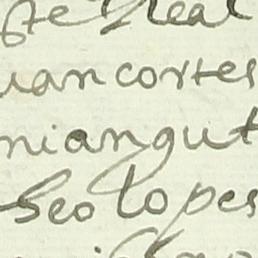 ste Real
uan cortes
niangut
seo lopes